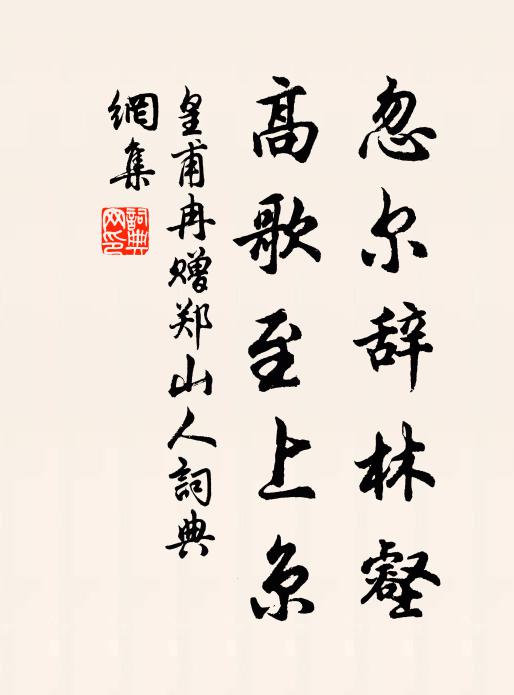 忽尔辞林壑
高歌至上京
皇甫冉赠郑山人詞典
網集
詞典
网印